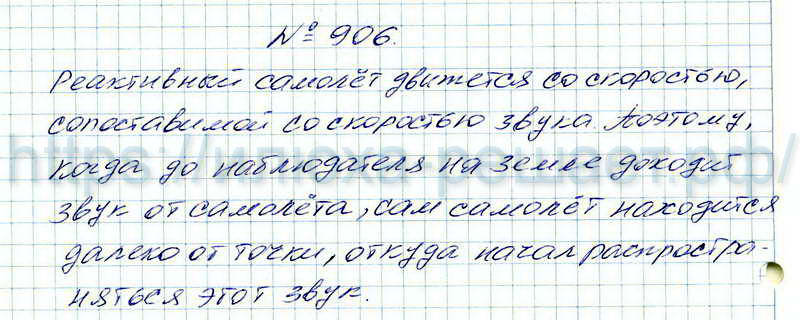 № 906.
Реактивный самолёт движется со скоростью,
сопоставимой со скоростью звука. Поэтому,
когда до наблюдателя на земле доходит
звук от самолёта, сам самолёт находится
далеко от точки, откуда начал распростра-
няться этот звук.